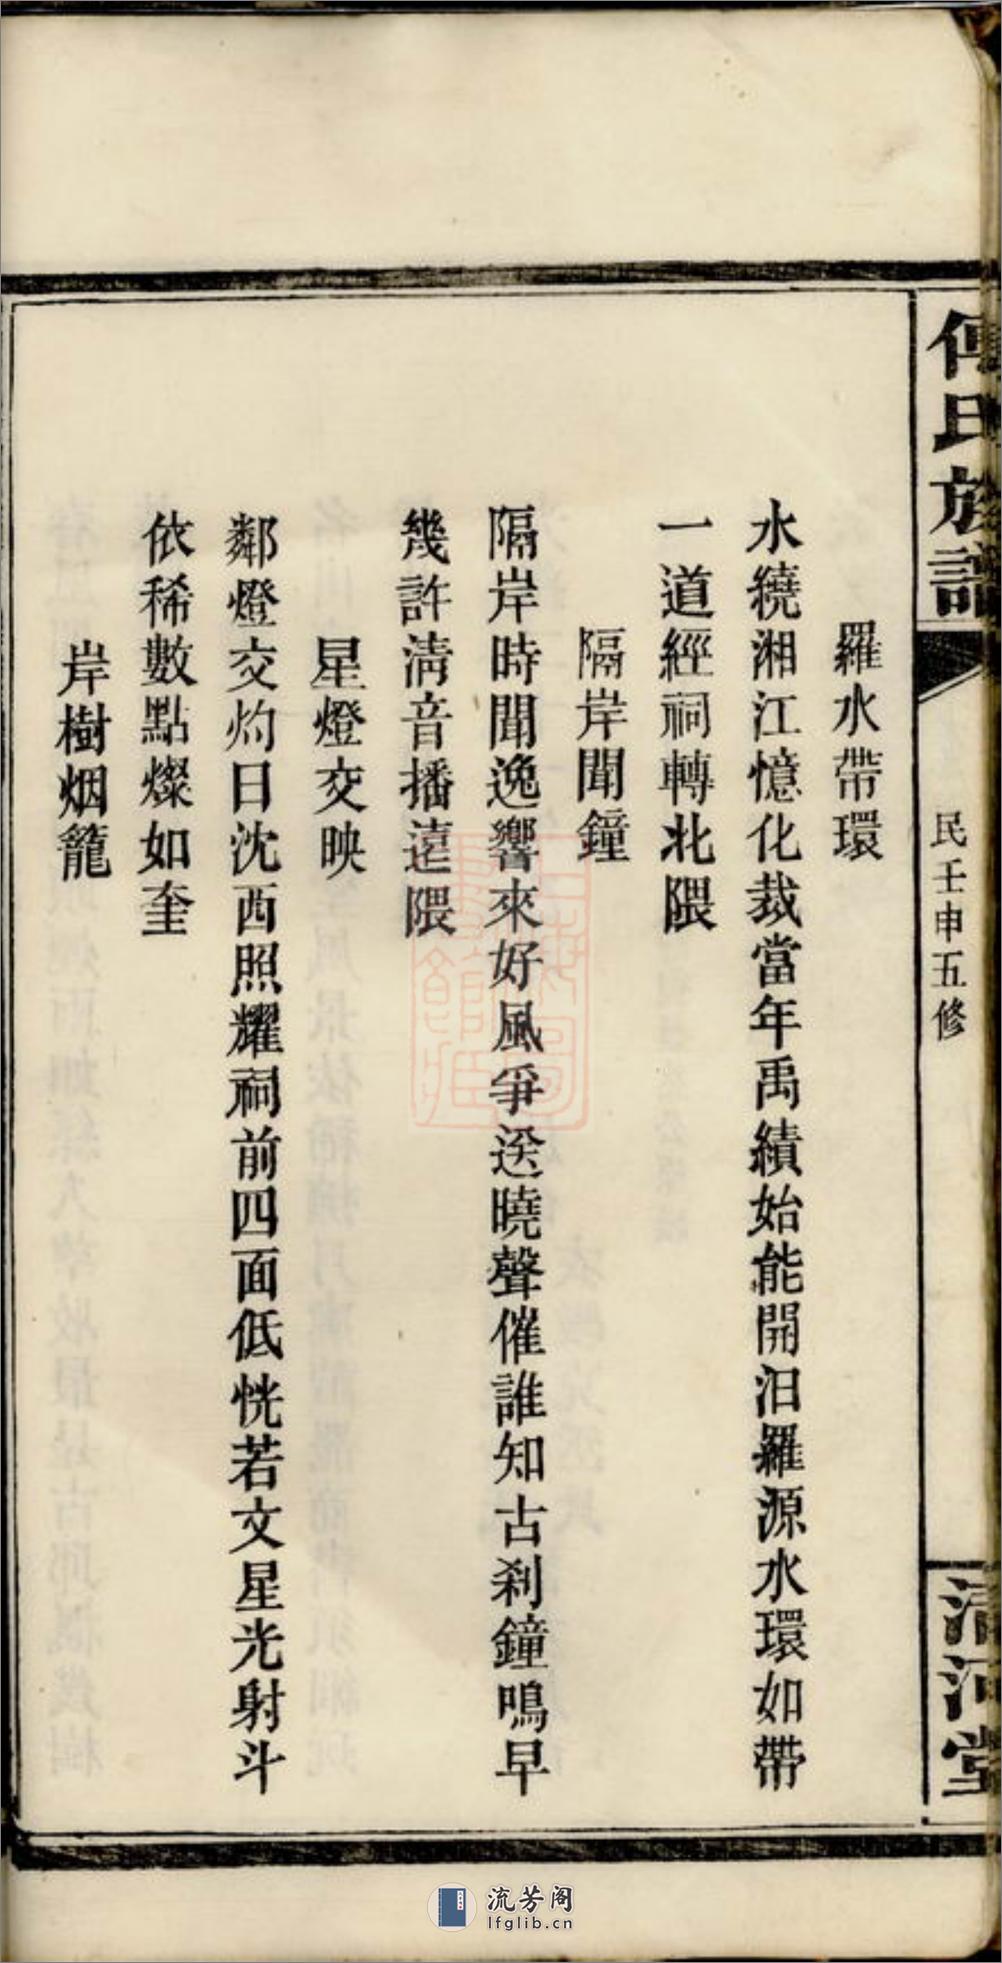 傅氏族譜
民壬申五修
清河堂
羅水帶環
水繞湘江憶化裁當年禹績始能開汨羅源水環如帶
一道經祠轉北隈
隔岸聞鐘
隔岸時聞逸響來好風爭送曉聲催誰知古刹鐘鳴早
幾許清音播遠隈
星燈交映
鄰燈交灼日沈西照耀祠前四面低恍若文星光射斗
依稀數點燦如奎
岸樹烟籠
流芳阁
lfglib.cn